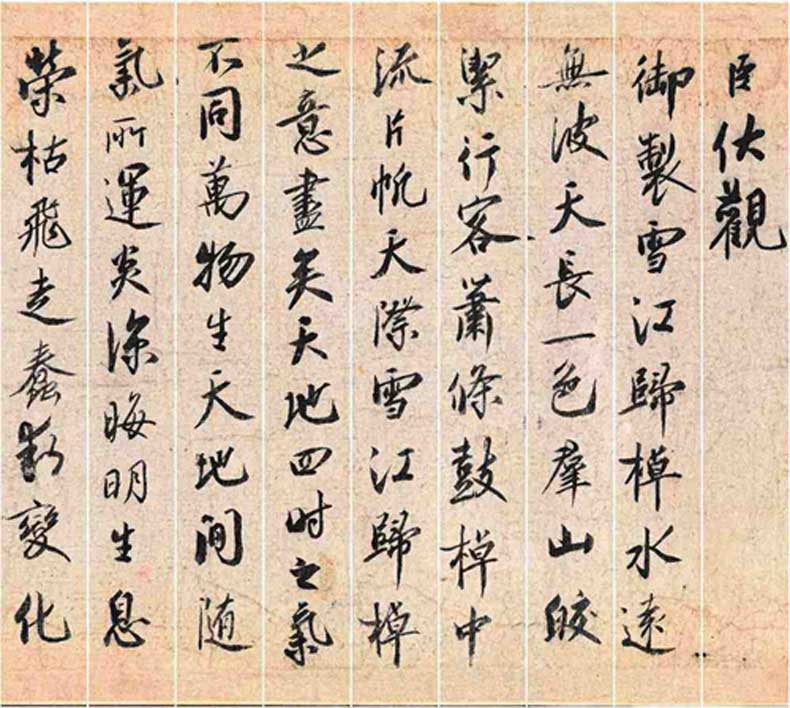 臣伏觀
御製雪江歸棹水遠
無波天長一色羣山皎
潔行客蕭條鼓棹中
流片帆天際雪江歸棹
之意盡矣天地四時之氣
不同萬物生天地間随
氣所運炎涼晦明生息
榮枯飛走蠢動變化